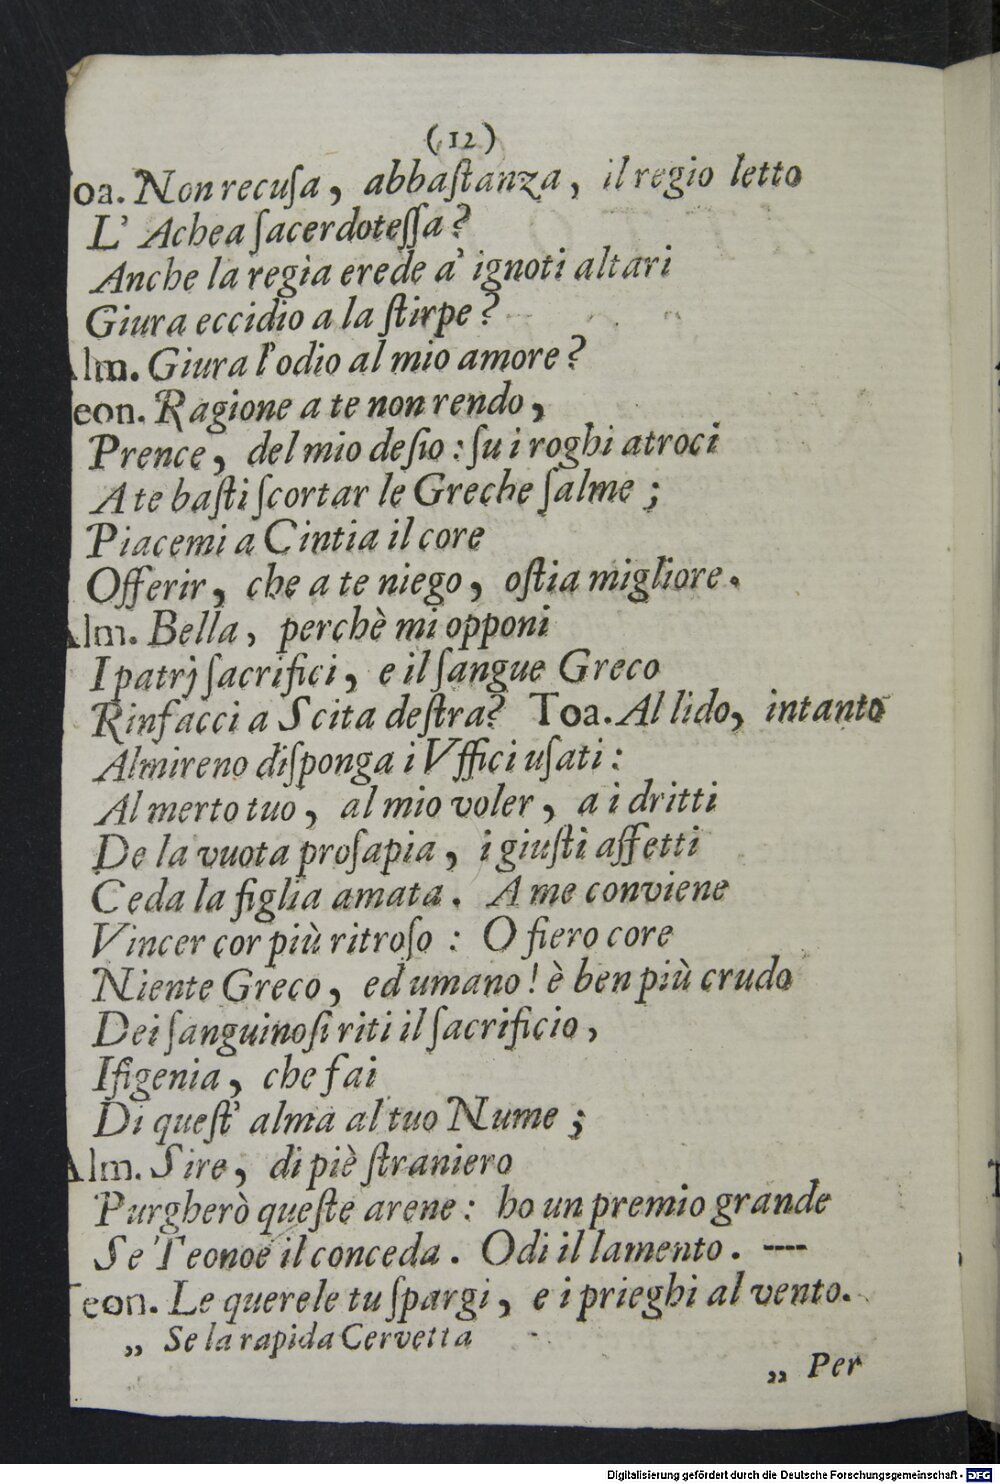 (12)
oa. Non recuſa, abbaſtanza, il regio letto
L' Achea ſacerdoteſſa?
Anche la regia erede a' ignoti altari
Giura eccidio a la ſtirpe?
Alm. Giura l'odio al mio amore?
eon. Ragione a te non rendo,
Prence, del mio deſio: ſu i roghi atroci
A te baſti ſcortar le Greche ſalme;
Piacemi a Cintia il core
Offerir, che a te niego, oſtia migliore.
Alm. Bella, perchè mi opponi
I patrj ſacrifici, e il ſangue Greco
Rinfacci a Scita deſtra? Toa. Al lido, intanto
Almireno diſponga i Vffici uſati:
Al merto tuo, al mio voler, a i dritti
De la vuota proſapia, i giuſti affetti
Ceda la figlia amata. A me conviene
Vincer cor più ritroſo: O fiero core
Niente Greco, ed umano! è ben più crudo
Dei ſanguinoſi riti il ſacrificio,
Ifigenia, che fai
Di queſt' alma al tuo Nume;
Alm. Sire, di piè ſtraniero
Purgherò queſte arene: ho un premio grande
Se Teonoe il conceda. Odi il lamento. ----
Teon. Le querele tu ſpargi, e i prieghi al vento.
„ Se la rapida Cervetta
„ Per
Digitalisierung gefördert durch die Deutsche Forschungsgemeinschaft - DFG